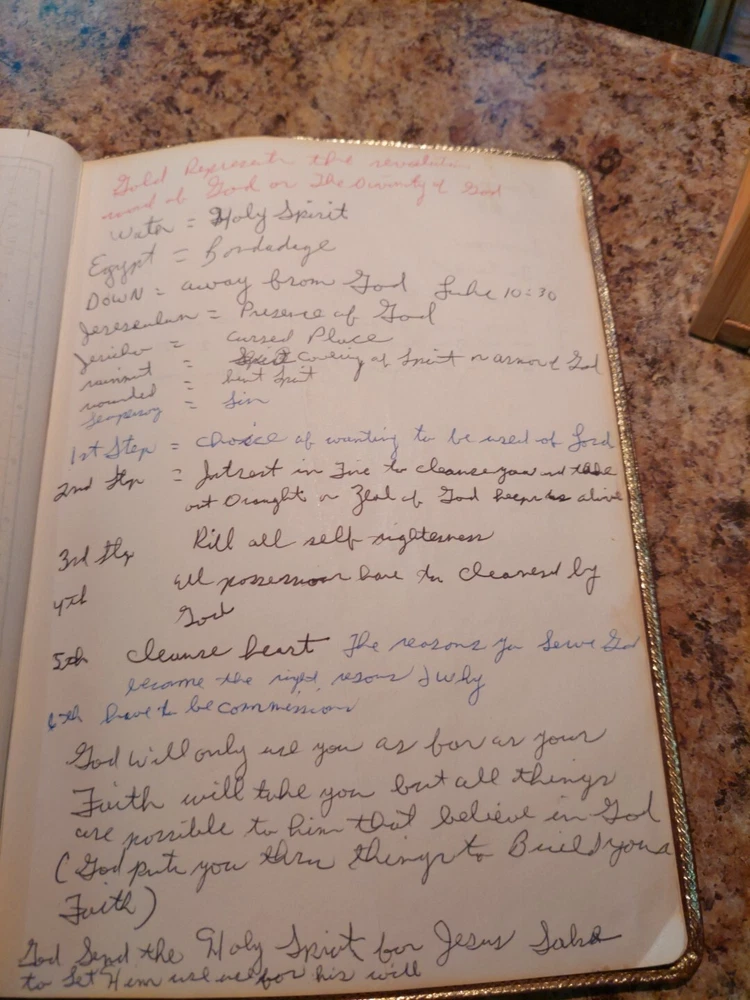 Gold Represents the
word of God or The Divinity of God
Water = Holy Spirit
Egypt = Bondadige
DOWN = away from God Luke 10:30
Jeresealum = Presence of God
Jericho = cursed Place
raiment = covering of Spirit or armor of God
wounded = hurt Spirit
= Sin
1st Step = choice of wanting to be used of Lord
2nd Step = Intrest in Fire to cleanse you
out Drought or Zeal of God keeps us alive
3rd Step Kill all self rightesness
4th All possession have to cleansed by
God
5th cleanse heart The reasons you Serve God
become the right resons & why
6th have to be commission
God will only use you as far as your
Faith will take you but all things
are possible to him that believe in God
(God puts you thru things to Build your
Faith)
God Send the Holy Spirit for Jesus Sake
to Let Him use us for his will